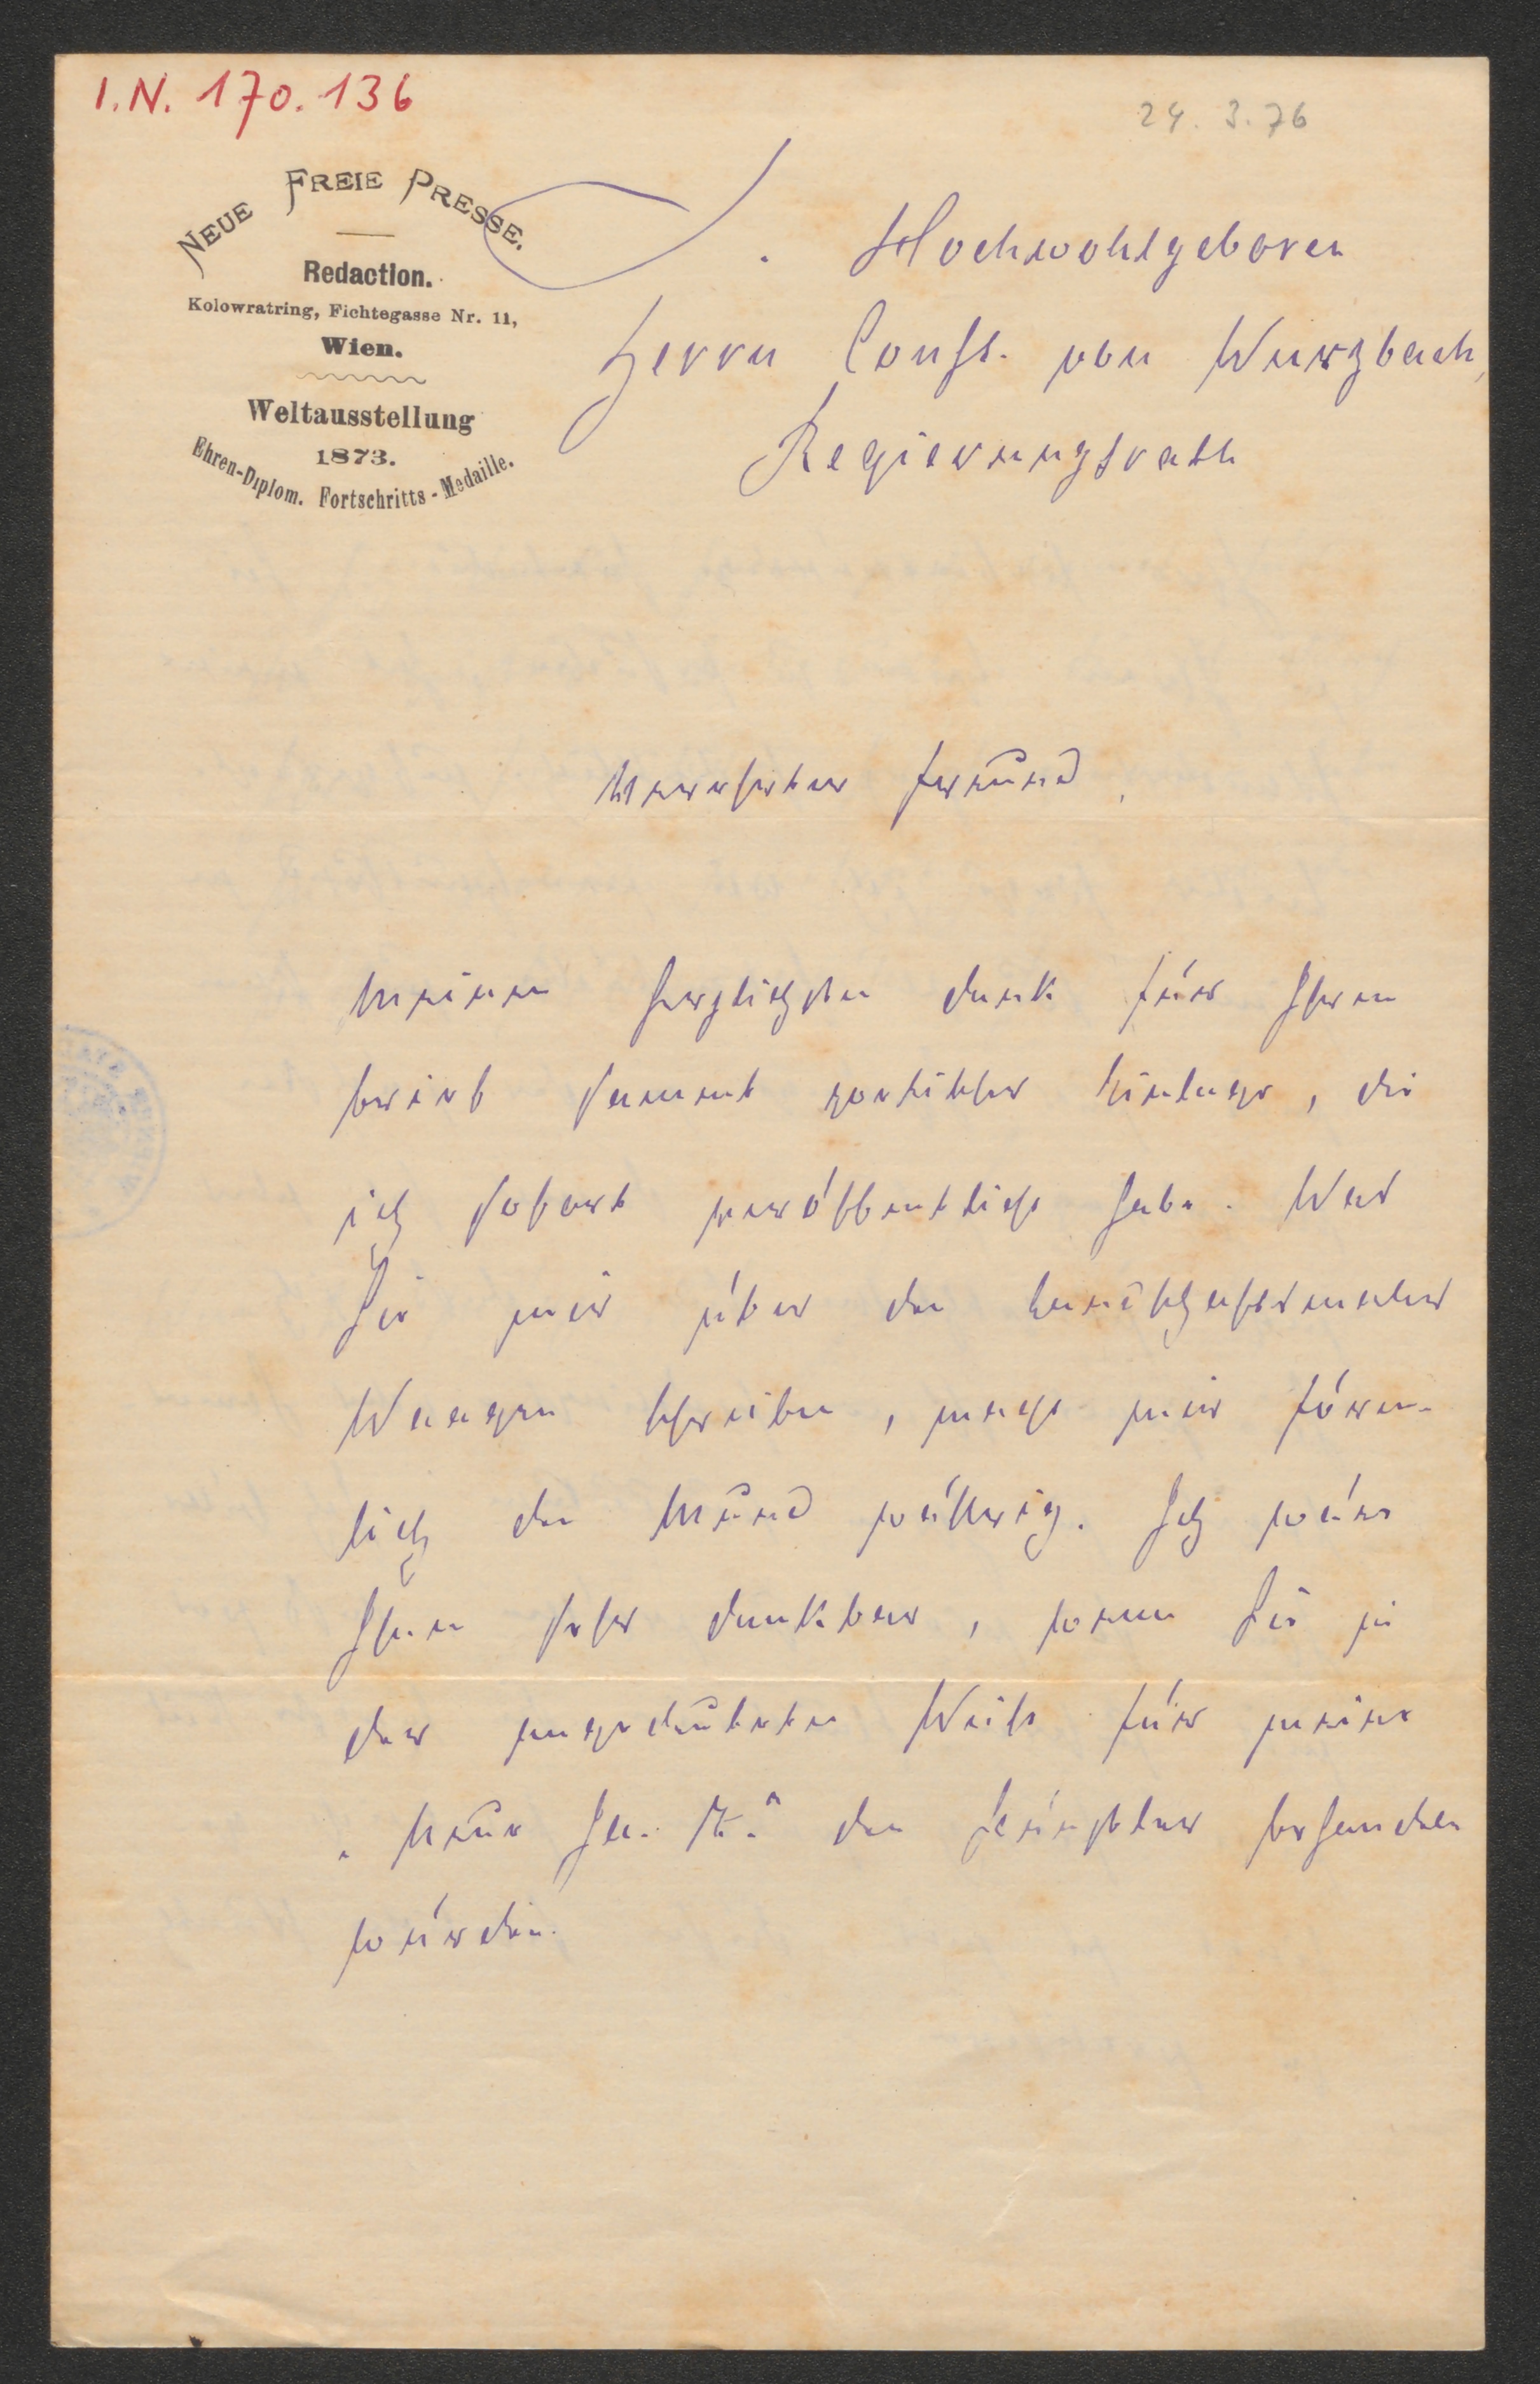 I.N. 170.136
24. 3. 76
NEUE FREIE PRESSE.
Redaction.
Kolowratring, Fichtegasse Nr. 11,
Wien.
Weltausstellung
1873.
Ehren-Diplom. Fortschritts-Medaille.
Hochwohlgeboren
Herrn Const. von Wurzbach,
Regierungsrath
Verehrter Freund,
Meinen herzlichsten Dank für Ihren
Brief sammt poetischer Einlage, die
ich sofort veröffentlicht habe. Was
Sie mir über den Landschaftsmaler
Waagen schreiben, macht mir förm-
lich den Mund wäßrig. Ich wäre
Ihnen sehr dankbar, wenn Sie in
der angedeuteten Weise für meine
„Neue Fr. Pr." den Künstler behandeln
würden.